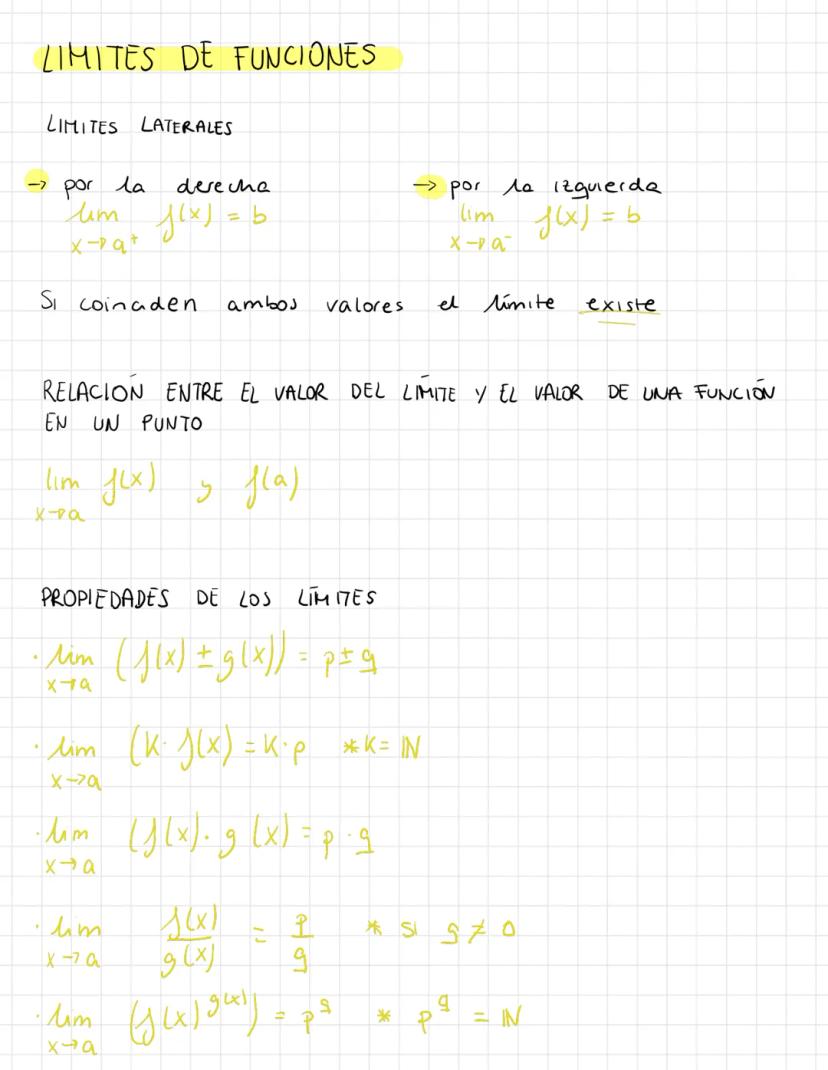 LIMITES DE FUNCIONES
LIMITES LATERALES
→ por la derecha → por la izquierda
lim f(x) = b lim f(x) = b
x→a⁺ x→a⁻
Si coinciden ambos valores el límite existe
RELACIÓN ENTRE EL VALOR DEL LÍMITE Y EL VALOR DE UNA FUNCIÓN
EN UN PUNTO
lim f(x) y f(a)
x→a
PROPIEDADES DE LOS LÍMITES
· lim (f(x) ± g(x)) = p ± q
x→a
· lim (K· f(x) = K· p *K = ℕ
x→a
· lim (f(x) · g(x) = p · q
x→a
· lim f(x)/g(x) = p/q * si q ≠ 0
x→a
· lim (f(x)^g(x)) = p^q * p^q = ℕ
x→a